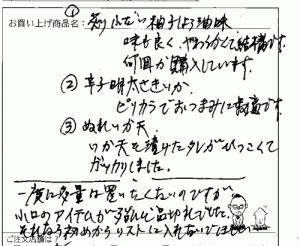 お買い上げ商品名:① ふだい 柚子しょう油味
味も良く、やわらかくて結構です。
何回か購入しています。
② 辛子明太さきいか
ピリカラでおつまみに最高です。
③ ぬれいか天
いか天を漬けたタレがひつこくて
ガッカリしました。
一度に多量は置いたくないのですが
小口のアイテムが多品切れでした。
それなら初めからリストに入れないでほしい
ご注文店舗は